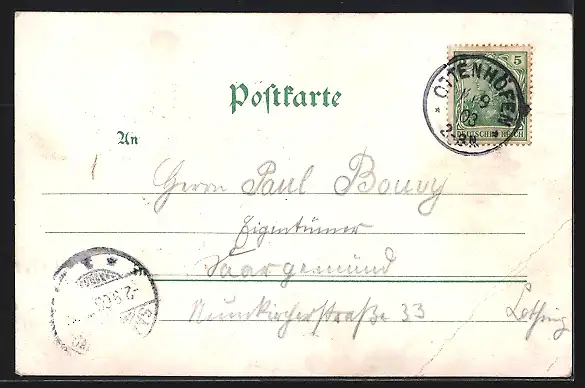 5
DEUTSCHES REICH
OTTENHÖFEN
9
03
2-3 N
Postkarte
An
Herrn Paul Bouvy
Eigentümer
Saargemünd
Neunkircherstraße 33
Lothring